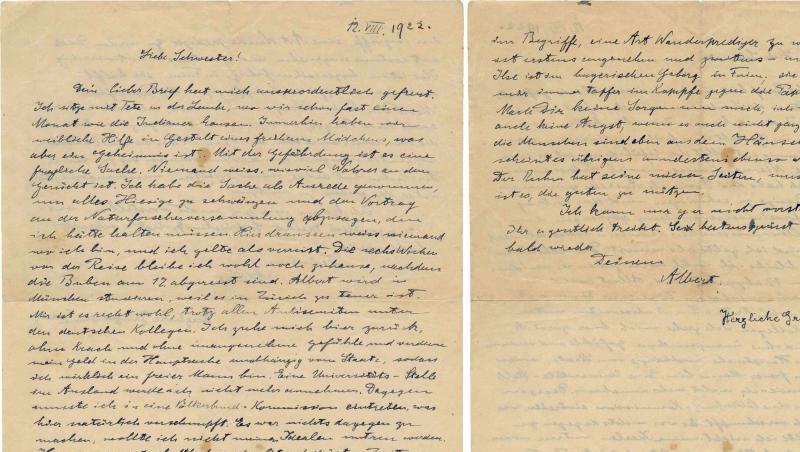 12. VIII. 1922.
Liebe Schwester!
Dein lieber Brief hat mich ausserordentlich gefreut.
Ich sitze mit Tete in der Laube, wo wir schon fast einen
Monat wie die Indianer hausen. Immerhin haben wir
weibliche Hilfe in Gestalt eines früheren Mädchens, was
aber ein Geheimnis ist. Mit der Gefährdung ist es eine
fragliche Sache. Niemand weiss, wieviel Wahres an dem
Gerücht ist. Ich habe die Sache als Ausrede genommen,
um alles Hiesige zu schwänzen und den Vortrag
an der Naturforscherversammlung abzusagen, den
ich hätte halten müssen. Hier draussen weiss niemand
wo ich bin, und ich gelte als verreist. Die sechs Wochen
vor der Reise bleibe ich wohl noch zuhause, nachdem
die Buben am 17. abgereist sind. Albert wird in
München studieren, weil es in Zürich zu teuer ist.
Mir ist es recht wohl, trotz allen Antisemiten unter
den deutschen Kollegen. Ich ziehe mich hier zurück,
ohne Krach und ohne unangenehme Gefühle und verdiene
mein Geld in der Hauptsache unabhängig vom Staate, sodass
ich wirklich ein freier Mann bin. Eine Universitäts-Stelle
im Ausland werde ich nicht mehr annehmen. Dagegen
musste ich in eine Völkerbund-Kommission eintreten, was
hier natürlich verschnupft. Es war nichts dagegen zu
machen, wollte ich nicht meinen Idealen untreu werden.
im Begriffe, eine Art Wanderprediger zu
ist erstens angenehm und zweitens
Ilse ist im bayerischen Gebirg in Ferien,
immer tapfer im Kampfe gegen die
Mach Dir keine Sorgen um mich, ich
auch keine Angst, wenn es auch nicht
die Menschen sind eben aus dem Häuse
scheint es übrigens mindestens ebenso
Der Ruhm hat seine miesen Seiten,
ist es, die guten zu nützen.
Ich kann mir gar nicht
Ihr eigentlich treibt. Seid bestens gegrüsst
bald wieder
Deinem
Albert.
Herzliche